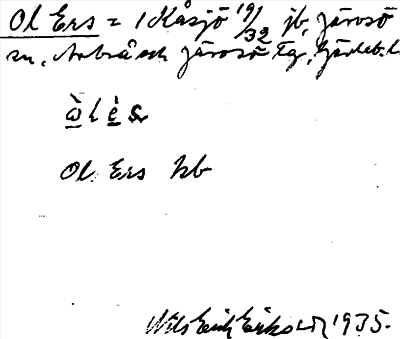 Ol Ers = 1 Kåsjö 19/32 jb, Järvsö
sn, Arbrå och Järvsö tg, Gävleb. l.
Ol Ers hb
Nils Erik Eriksson 1935.